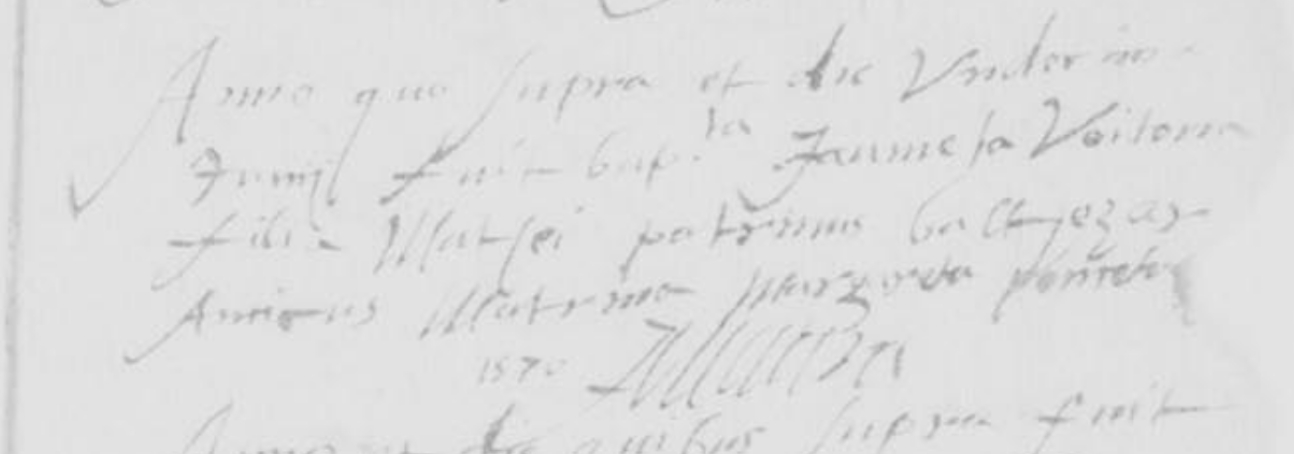 Anno quo supra et die Undecim
Junij fuit bap.ta Jaumeta Voitorna
filia Mathei patrinus baltezar
Amicus Matrina Margareta
1570
Anno et die quibus supra fuit